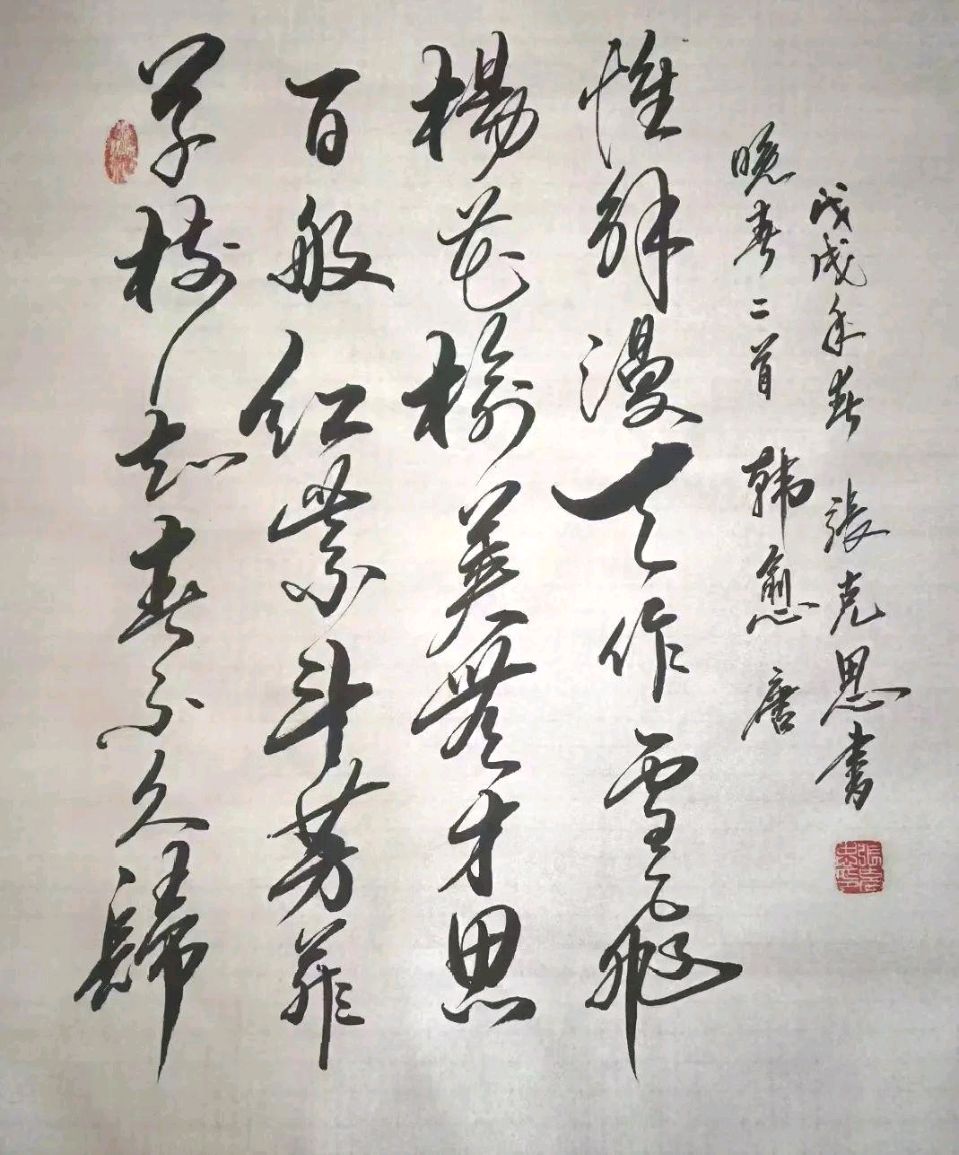 草樹知春不久歸
百般紅紫斗芳菲
楊花榆莢無才思
惟解漫天作雪飛
晚春二首 韩愈 唐
戊戌年春 張克思書
張克思印